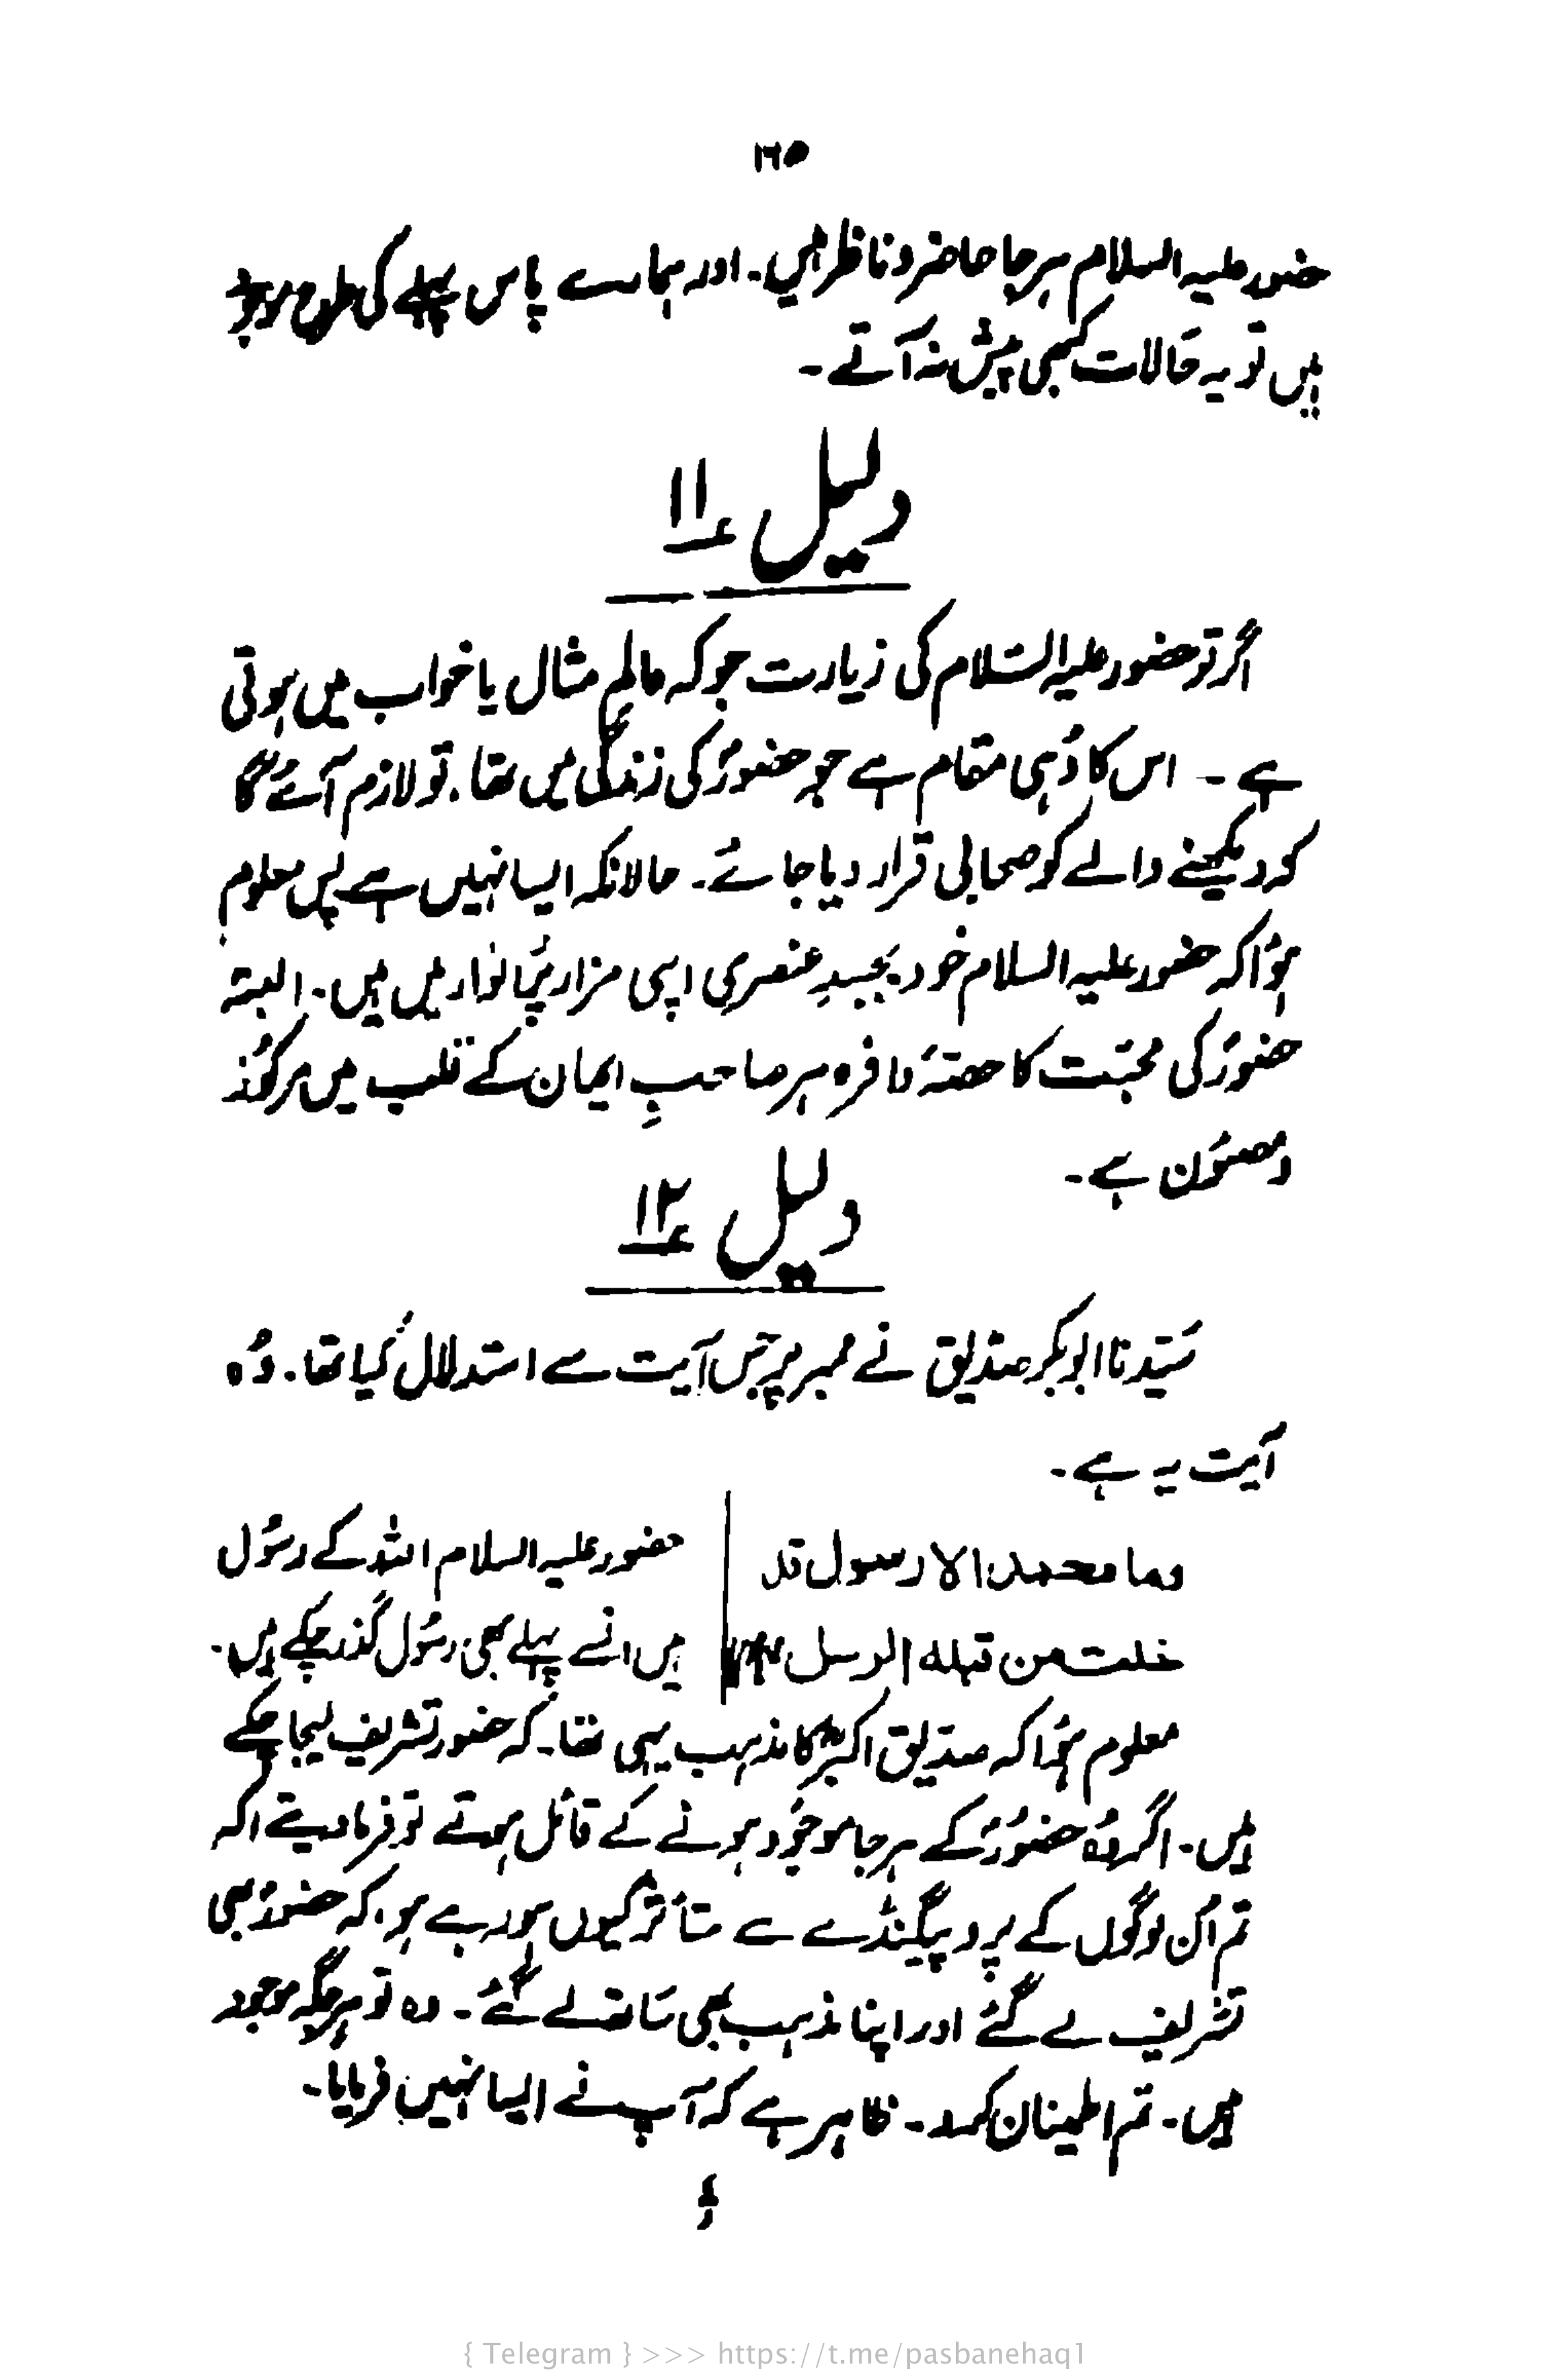 ۱۶۵
حضور علیہ السلام ہر جا حاضر و ناظر ہیں۔ اور ہمارے پاس پہلے کی طرح موجود
ہیں تو یہ حالات کبھی پیش نہ آتے۔
دلیل ۱۱؎
اگر تو حضور علیہ السّلام کی زیارت جو کہ عالم مثال یا خواب میں ہوتی
ہے۔ اس کا وُہی مقام ہے جو حضورؐ کی زندگی میں تھا۔ تو لازم آئے گا
کو دیکھنے والے کو صحابی قرار دیا جائے۔ حالانکہ ایسا نہیں ہے پس معلوم
ہؤا کہ حضور علیہ السلام خود بجسدِ عنصری اپنی مزار پُر انوار میں ہیں۔ البتہ
حضورؐ کی محبّت کا حصّۂ وافرہ ہر صاحبِ ایمان کے قلب میں مرکُوز
و مصئون ہے۔
دلیل ۱۲؎
سَیّدنا ابوبکر صدّیق نے ممبر پر جس آیت سے استدلال کیا تھا۔ وُہ
آیت یہ ہے۔
وما محمد الا رسول قد
حضور علیہ السلام اللہ کے رسُول
خلت من قبله الرسل
ہیں انسے پہلے بھی رسُول گذر چکے ہیں۔
معلوم ہؤا کہ صدّیق اکبرؓ کا مذہب یہی تھا۔ کہ حضور تشریف لیجا چکے
ہیں۔ اگر وُہ حضورؐ کے ہر جا موجُود ہونے کے قائل ہوتے تو فرما دیتے اکہ
تم اُن لوگوں کے پروپیگنڈے سے متأثر کیوں ہو رہے ہو، کہ حضورؐ بھی
تشریف لے گئے اور اپنا مذہب بھی ساتھ لے گئے۔ وہ تو ہر جگہ موجود
ہیں۔ تم اطمینان کرو۔ ظاہر ہے کہ آپ نے ایسا نہیں فرمایا۔
{ Telegram } >>> https://t.me/pasbanehaq1